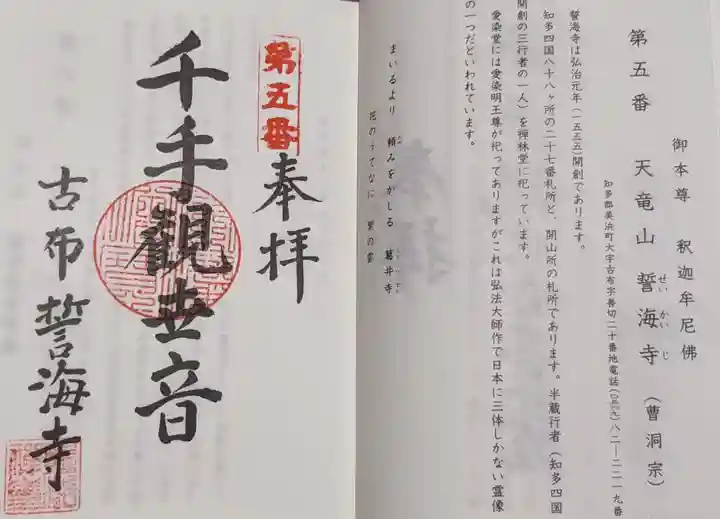 御本尊　釈迦牟尼佛
第五番　天竜山　誓海寺（曹洞宗）
せいかいじ
知多郡美浜町大字古布字善切二十番地電話(〇五六九)八二―二二一九番
誓海寺は弘治元年（一五五五）開創であります。
知多四国八十八ヶ所の二十七番札所と、開山所の札所であります。半蔵行者（知多四国
開創の三行者の一人）を禅林堂に祀っています。
愛染堂には愛染明王尊が祀ってありますがこれは弘法大師作で日本に三体しかない霊像
の一つだといわれています。
まいるより　頼みをかくる　葛井寺
花のうてなに　紫の雲
第五番
奉拝
千手観世音
古布誓海寺